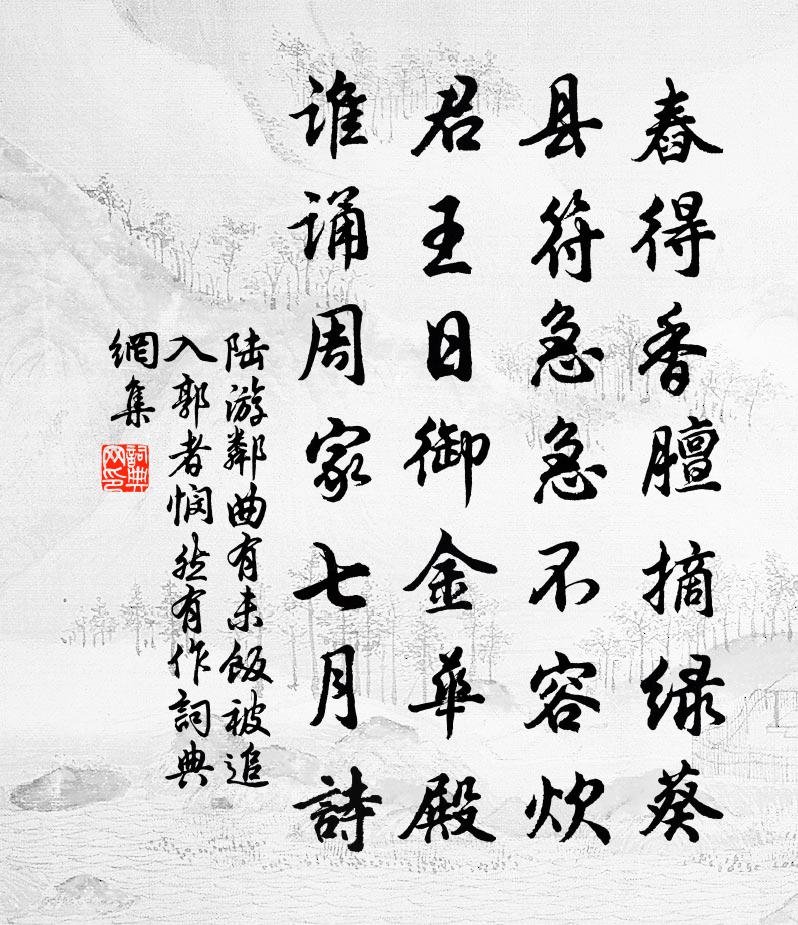 舂得香膻摘绿葵
县符急急不容炊
君王日御金华殿
谁诵周家七月詩
陆游鄰曲有未飯被追
入郭者悯然有作詞典
網集
詞典
网印